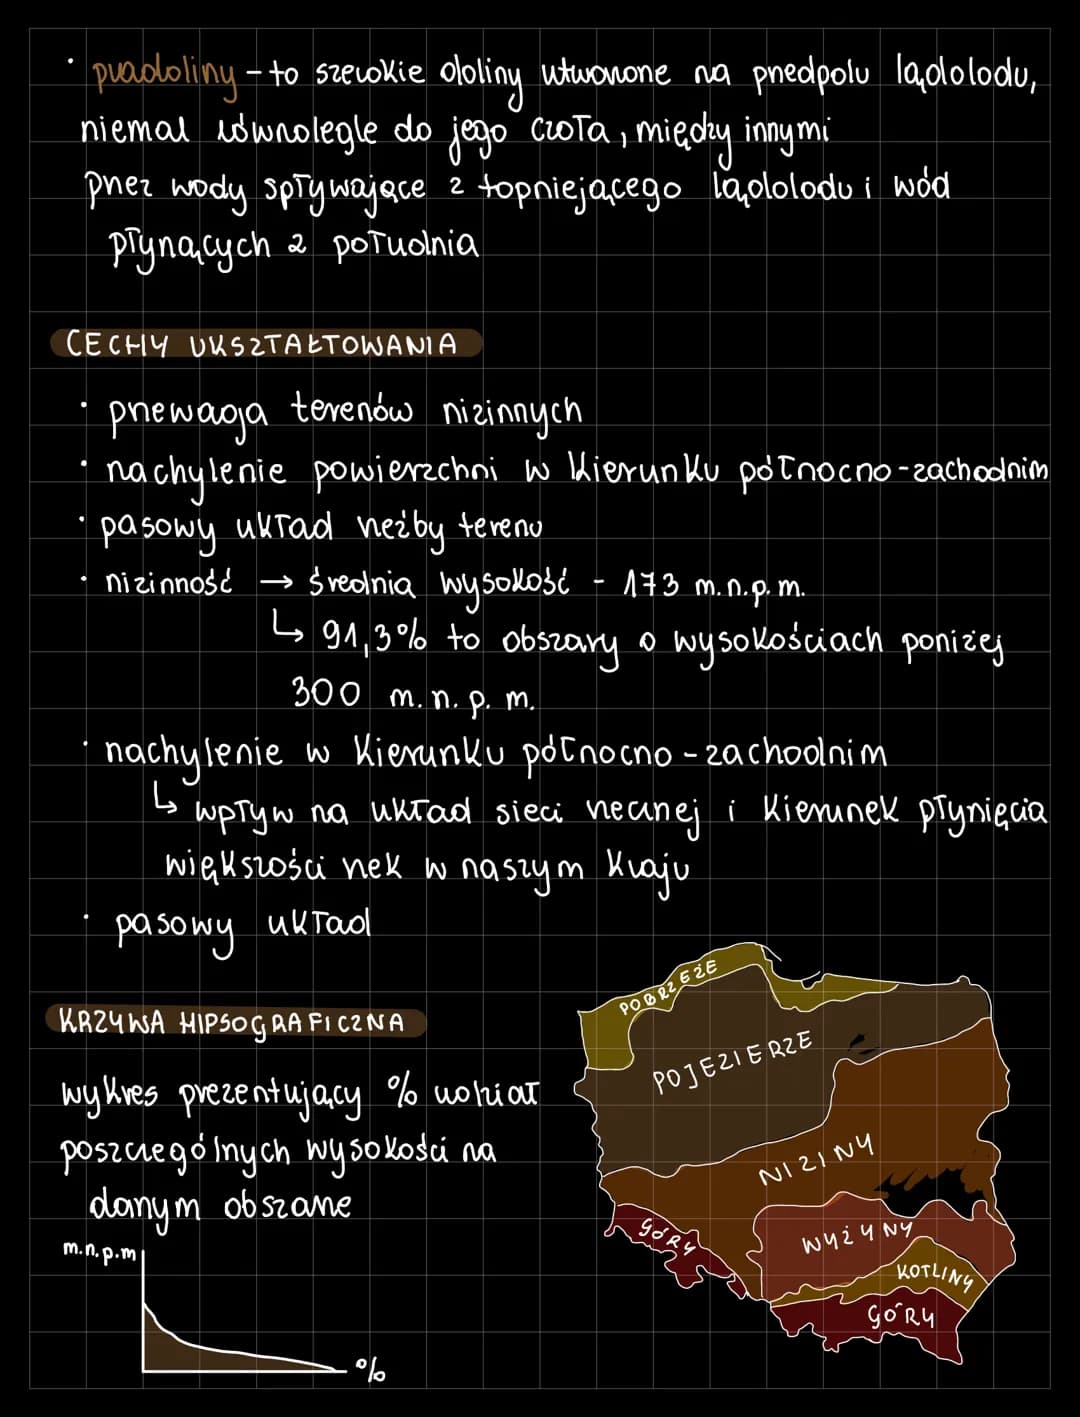 • pradoliny - to szerokie doliny utworzone na przedpolu lądolodu,
niemal równolegle do jego czoła, między innymi
przez wody spływające z topniejącego lądolodu i wód
płynących z południa
CECHY UKSZTAŁTOWANIA
• przewaga terenów nizinnych
• nachylenie powierzchni w kierunku północno-zachodnim
• pasowy układ rzeźby terenu
• nizinność → średnia wysokość - 173 m.n.p.m.
↳ 91,3% to obszary o wysokościach poniżej
300 m.n.p.m.
• nachylenie w kierunku północno-zachodnim
↳ wpływ na układ sieci rzecznej i kierunek płynięcia
większości rzek w naszym kraju
• pasowy układ
KRZYWA HIPSOGRAFICZNA
wykres prezentujący % udział
poszczególnych wysokości na
danym obszarze
m.n.p.m
%
POBRZEŻE
POJEZIERZE
NIZINY
GÓRY
WYŻYNY
KOTLINY
GÓRY